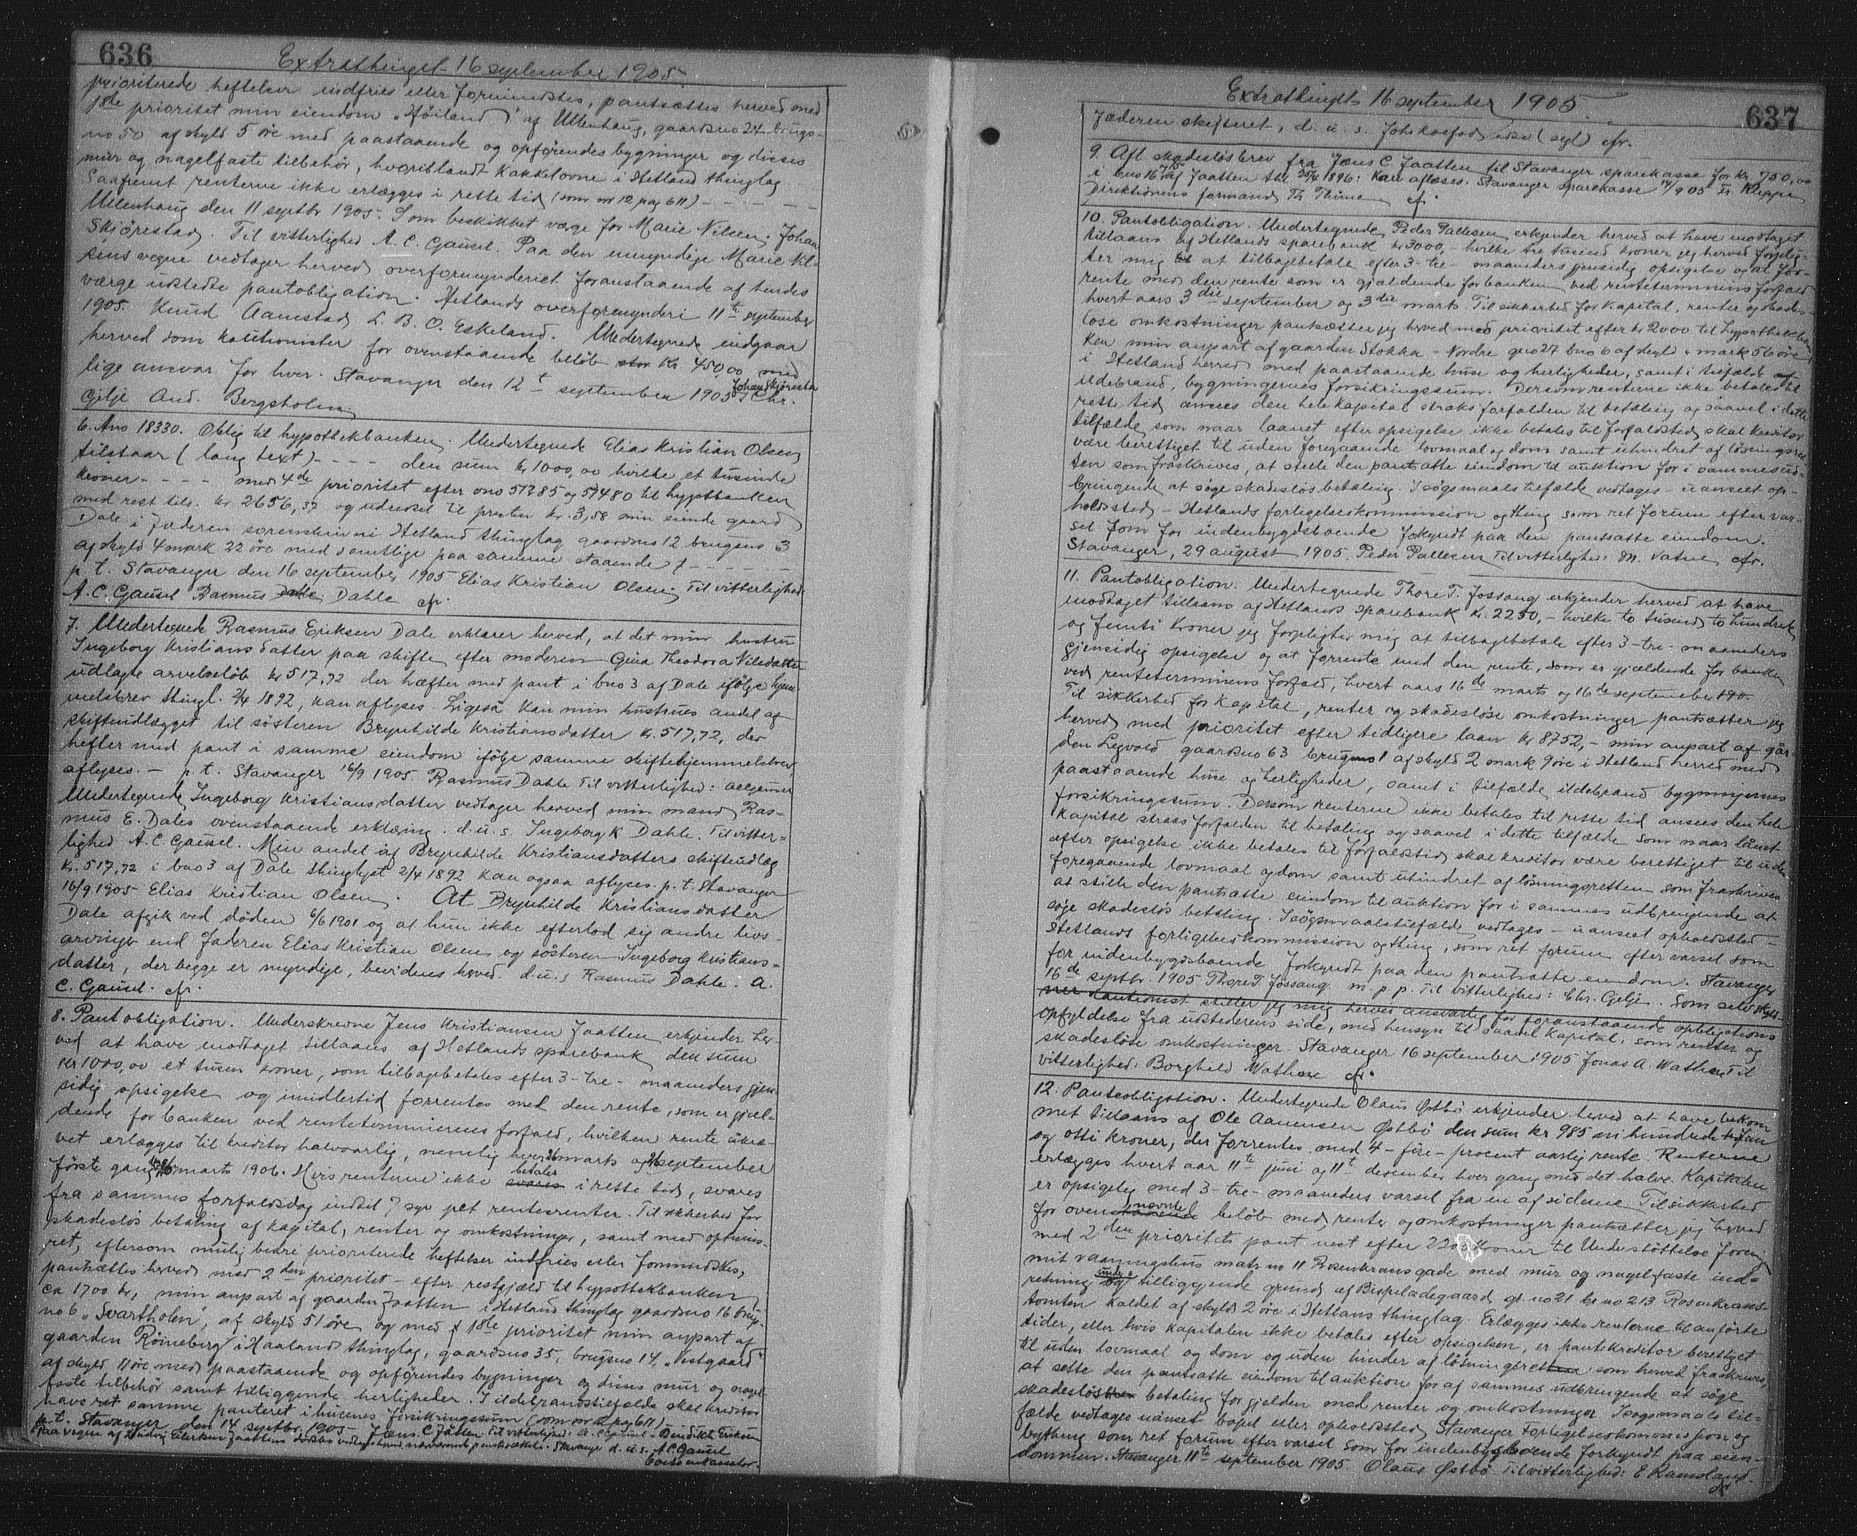 636
Extrathinget 16 september 1905
prioriterede heftelser indfries eller formindskes, pantsættes herved med
1ste prioritet min eiendom "Høiland" af Ullenhaug, gaardsno 24 brugs-
no 50 af skyld 5 øre med paastaaende og opførendes bygninger og disses
mur og nagelfaste tilbehør, hvoriblandt kakkelovne i Hetland thinglag
Saafremt renterne ikke erlægges i rette tid (som nr 12 pag 611) - - - - -
Ullenhaug den 11 septbr 1905. Som beskikket værge for Marie Nilsen. Johan
Skjørestad. Til vitterlighed A. C. Gausel. Paa den umyndige Marie Nil-
sens vegne vedtager herved overformynderiet foranstaaende af hendes
værge udstedte pantobligation. Hetlands overformynderi 11te september
1905. Knud Aanestad L. B. O. Eskeland. Undertegnede indgaar
herved som kautionister for ovenstaaende beløb stor Kr 450,00 med
lige ansvar for hver. Stavanger den 12t september 1905 Johan Skjørestad Chr.
Gilje And. Bergsholm
6. Ano 18330. Oblig til hypothekbanken. Undertegnede Elias Kristian Olsen
tilstaar (lang text) - - - - den sum kr 1000,00 hvilke et tusinde
kroner - - - - med 4de prioritet efter ono 57385 og 57480 til hyptbanken
med rest tils. kr. 2656,37 og udredsel til presten kr. 3,58 min eiende gaard
Dale i Jæderen sorenskriveri Hetland thinglag gaardsno 12 brugsno 3
af skyld 4 mark 22 øre med samtlige paa samme staaende f - - - - -
p. t. Stavanger den 16 september 1905 Elias Kristian Olsen. Til vitterlighed
A. C. Gausel Rasmus Dale Dahle cfr.
7. Undertegnede Rasmus Eriksen Dale erklærer herved, at det min hustru
Ingeborg Kristiansdatter paa skifte efter moderen Gina Theodora Nilsdatter
udlagte arvebeløb kr 517,72 der hæfter med pant i bno 3 af Dale ifølge hjem-
melsbrev thingl. 2/4 1892, kan aflyses. Ligesaa kan min hustrus andel af
skifteudlægget til søsteren Brynhilde Kristiansdatter kr. 517,72, der
hefter med pant i samme eiendom ifølge samme skiftehjemmelsbrev
aflyses. - p. t. Stavanger 16/9 1905. Rasmus Dahle Til vitterlighed: A C Gausel
Undertegnede Ingeborg Kristiansdatter vedtager herved min mand Ras-
mus E. Dales ovenstaaende erklæring. d. u. s. Ingeborg K Dahle. Til vitter-
lighed A. C Gausel. Min andel af Brynhilde Kristiansdatters skifteudlæg
kr. 517,72 i bno 3 af Dale thinglyst 2/4 1892 kan ogsaa aflyses. p. t. Stavanger
16/9 1905 Elias Kristian Olsen. At Brynhilde Kristiansdatter
Dale afgik ved døden 6/6 1901 og at hun ikke efterlod sig andre livs-
arvinger end faderen Elias Kristian Olsen og søsteren Ingeborg Kristians-
datter, der begge er myndige, bevidnes herved. d. u. s Rasmus Dahle. A.
C. Gausel. cfr.
8. Pantobligation. Underskrevne Jens Kristiansen Jaatten erkjender her-
ved at have modtaget tillaans af Hetlands sparebank den sum
kr 1000,00 et tusen kroner, som tilbagebetales efter 3-tre- maaneders gjen-
sidig opsigelse og imidlertid forrentes med den rente, som er gjæl-
dende for banken ved renteterminernes forfald, hvilken rente ukræ-
vet erlægges til kreditor halvaarlig, nemlig hver 26 marts og 26 september
første gang 26 marts 1906. Hvis renterne ikke svares betales i rette tid, svares
fra sammes forfaldsdag indtil 7 syv pct rentesrenter. Til sikkerhed for
skadesløs betaling af kapital, renter og omkostninger, samt med opryknings-
ret, eftersom mulig bedre prioriterede heftelser indfries eller formindskes,
pantsættes herved med 2den prioritet - efter restgjæld til hypothekbanken
ca 1700 kr, min anpart af gaarden Jaatten i Hetland thinglag gaardsno 16 brug-
no 6 "Svartholen", af skyld 51 øre og med 1ste prioritet min anpart af
gaarden Røineberg i Haaland thinglag, gaardsno 35, brugsno 14. "Vestgaard"
af skyld 11 øre med paastaaende og opførendes bygninger og disses mur og nagel-
faste tilbehør samt tilliggende herligheder. I ildebrandstilfælde skal kreditor
have ret samme panteret i husenes forsikringssum (som nr 12 pag 611) -
p. t. Stavanger den 14 septbr 1905 Jens. C. Jåtten Til vitterlighed: A. C Gausel - Benedikt Eriksen
A C Gausel

637
Extrathinget 16 september 1905
Jæderen skifteret, d. u. s. (sgl) cfr.
9. Afl skadesløsbrev fra Jens C. Jaatten til Stavanger sparekasse for kr 750,00
i bno 16 af Jaatten thl 25/4 1896: Kan aflæses. Stavanger sparekasse 14/9 05
Direktionens formand Th Thime cfr.
10. Pantobligation. Undertegnede Peder Pallesen erkjender herved at have modtaget
tillaans af Hetlands sparebank kr 3000,- hvilke tre tusind kroner jeg herved forplig-
ter mig til at tilbagebetale efter 3-tre- maaneders gjensidig opsigelse og at for-
rente med den rente som er gjældende for banken ved renteterminens forfald
hvert aars 3die september og 3die marts. Til sikkerhed for kapital, renter og skades-
løse omkostninger pantsætter jeg herved med prioritet efter kr 2000 til hypothekban-
ken min anpart af gaarden Stokka - Nordre gno 27 bno 6 af skyld 4 mark 56 øre
i Hetland herred med paastaaende huse og herligheder, samt i tilfælde af
ildebrand, bygningernes forsikringssum. Dersom renterne ikke betales til
rette tid anses den hele kapital straks forfalden til betaling og saavel i dette
tilfælde som naar laanet efter opsigelse ikke betales til forfaldstid skal kreditor
være berettiget til uden foregaaende lovmaal og dom samt uhindret af løsningsret-
ten som fraskrives, at stille den pantsatte eiendom til auktion for i sammes ud-
bringende at søge skadesløs betaling. I søgsmaalstilfælde vedtages - uanseet op-
holdssted - Hetlands forligelseskommission og thing som ret forum efter var-
sel som for indenbygdsboende forkyndt paa den pantsatte eiendom.
Stavanger, 29 august 1905. Peder Pallesen Til vitterlighed: M. Vatne cfr.
11. Pantobligation. Undertegnede Thore T. Jossang erkjender herved at have
modtaget tillaans af Hetlands sparebank kr. 2250,- hvilke to tusind to hundrede
og femti kroner jeg forpligter mig at tilbagebetale efter 3-tre- maaneders
gjensidig opsigelse og at forrente med den rente, som er gjældende for banken
ved renteterminens forfald, hvert aars 16de marts og 16de september 190-
Til sikkerhed for kapital, renter og skadesløse omkostninger pantsætter jeg
herved med prioritet efter tidligere laan kr 8752,- min anpart af går-
den Legvold gaardsno 63 brugsno 1 af skyld 2 mark 9 øre i Hetland herred med
paastaaende huse og herligheder, samt i tilfælde ildebrand bygningernes
forsikringssum. Dersom renterne ikke betales til rette tid ansees den hele
kapital straks forfalden til betaling og saavel i dette tilfælde som naar lånet
efter opsigelse ikke betales til forfaldstid skal kreditor være berettiget til uden
foregaaende lovmaal og dom samt uhindret af løsningsretten som fraskrives
at stille den pantsatte eiendom til auktion for i sammes udbringende at
søge skadesløs betaling. I søgsmaalstilfælde vedtages - uanseet opholdssted -
Hetlands forligelseskommission og thing, som ret forum efter varsel som
for indenbygdsboende forkyndt paa den pantsatte eiendom. Stavanger
16de septbr. 1905 Thore T. Jøssang. m. p. p. Til vitterlighed: Chr. Gilje. Som selvskyld-
ner kautionist stiller jeg mig herved ansvarlig for foranstaaende obligations
opfyldelse fra udstederens side, med hensyn til saavel kapital, som renter og
skadesløse omkostninger. Stavanger 16 september 1905 Jonas A. Wathne Til
vitterlighed: Borghild Wathne cfr.
12. Panteobligation. Undertegnede Olaus Østbø erkjender herved at have bekom
met tillaans af Ole Aanensen Østbø den sum kr 985 ni hundrede fem
og otti kroner, der forrentes med 4 - fire - procent aarlig rente. Renterne
erlægges hvert aar 11te juni og 11t desember hver gang med det halve. Kapitalen
er opsigelig med 3-tre- maaneders varsel fra en af siderne. Til sikkerhed
for ovenstaaende nevnte beløb med renter og omkostninger pantsætter jeg herved
med 2den prioritets pant næst efter 2200 kroner til Understøttelse foren
mit vaaningshus matr no 11 Rosenkransgade med mur og nagelfaste ind-
retning og underliggende grund af Bispeladegaard gt no 21 br no 213 Rosenkrans-
tomten kaldet af skyld 2 øre i Hetlans thinglag. Erlægges ikke renterne til anførte
tider, eller hvis kapitalen ikke betales efter opsigelsen, er pantekreditor berettiget
til uden lovmaal og dom og uden hinder af løsningsretten som herved fraskrives,
at sætte den pantsatte eiendom til auktion for af sammes udbringende at søge
skadesløs betaling for gjelden med renter og omkostninger. I søgsmaals til-
fælde vedtages uanset bopel eller opholdssted Stavanger forligelseskommisjon og
bything som ret forum efter varsel som for indenbygdsboende forkyndt paa eien-
dommen. Stavanger 11te september 1905 Olaus Østbø Til vitterlighed: E Ramsland.
cfr